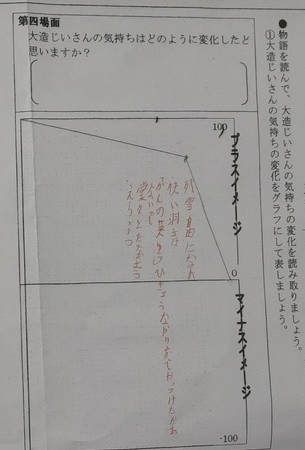 ●物語を読んで、大造じいさんの気持ちの変化を読み取りましょう。
①大造じいさんの気持ちの変化をグラフにして表しましょう。
第四場面
大造じいさんの気持ちはどのように変化したと
思いますか？
100
プラスイメージ
0
マイナスイメージ
-100
快い羽音
がんの英ゆう
堂々と